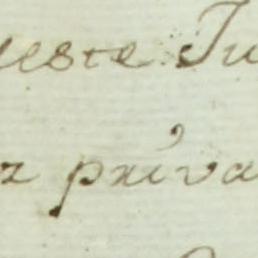 este Ju
z priva